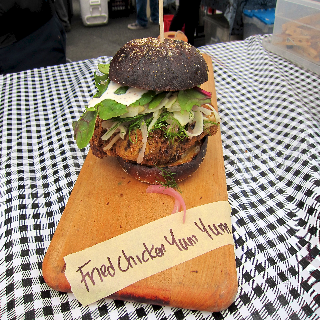 Fried Chicken Yum Yum